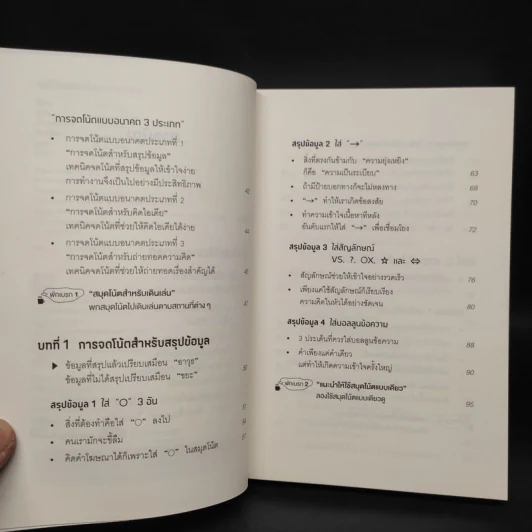 "การจดโน้ตแบบอนาคต 3 ประเภท"
• การจดโน้ตแบบอนาคตประเภทที่ 1
"การจดโน้ตสำหรับสรุปข้อมูล"
เทคนิคจดโน้ตที่สรุปข้อมูลให้เข้าใจง่าย
การทำงานจึงเป็นไปอย่างมีประสิทธิภาพ 42
• การจดโน้ตแบบอนาคตประเภทที่ 2
"การจดโน้ตสำหรับคิดไอเดีย"
เทคนิคจดโน้ตที่ช่วยให้คิดไอเดียได้ง่าย
• การจดโน้ตแบบอนาคตประเภทที่ 3
"การจดโน้ตสำหรับถ่ายทอดความคิด"
เทคนิคจดโน้ตที่ช่วยให้ถ่ายทอดเรื่องสำคัญได้
พักเบรก 1 "สมุดโน้ตสำหรับเดินเล่น"
พกสมุดโน้ตไปเดินเล่นตามสถานที่ต่าง ๆ
บทที่ 1 การจดโน้ตสำหรับสรุปข้อมูล
▶ ข้อมูลที่สรุปแล้วเปรียบเสมือน "อาวุธ"
ข้อมูลที่ไม่ได้สรุปเปรียบเสมือน "ขยะ" 50
สรุปข้อมูล 1 ใส่ "○" 3 อัน
• สิ่งที่ต้องทำคือใส่ "○" ลงไป 54
• คนเรามักจะขี้ลืม
• คิดคำโฆษณาได้ก็เพราะใส่ "○" ในสมุดโน้ต
สรุปข้อมูล 2 ใส่ "→"
• สิ่งที่ตรงกันข้ามกับ "ความยุ่งเหยิง"
ก็คือ "ความเป็นระเบียบ" 63
• ถ้ามีป้ายบอกทางก็จะไม่หลงทาง 68
• "→" ทำให้เราเกิดข้อสงสัย 70
• ทำความเข้าใจเนื้อหาทีหลัง
อันดับแรกให้ใส่ "→" เพื่อเชื่อมโยง 72
สรุปข้อมูล 3 ใส่สัญลักษณ์
VS. ?. OX. ☆ และ ⇔
• สัญลักษณ์ช่วยให้เข้าใจอย่างรวดเร็ว 76
• เพียงแค่ใช้สัญลักษณ์ก็เรียบเรียง
ความคิดในหัวได้อย่างชัดเจน 80
สรุปข้อมูล 4 ใส่บอลลูนข้อความ
• 3 ประเด็นที่ควรใส่บอลลูนข้อความ 88
• คำเพียงแค่คำเดียว
แต่ทำให้เกิดความเข้าใจครั้งใหญ่ 90
พักเบรก 2 "แนะนำให้ใช้สมุดโน้ตแบบเดียว"
ลองใช้สมุดโน้ตแบบเดียวดู 95